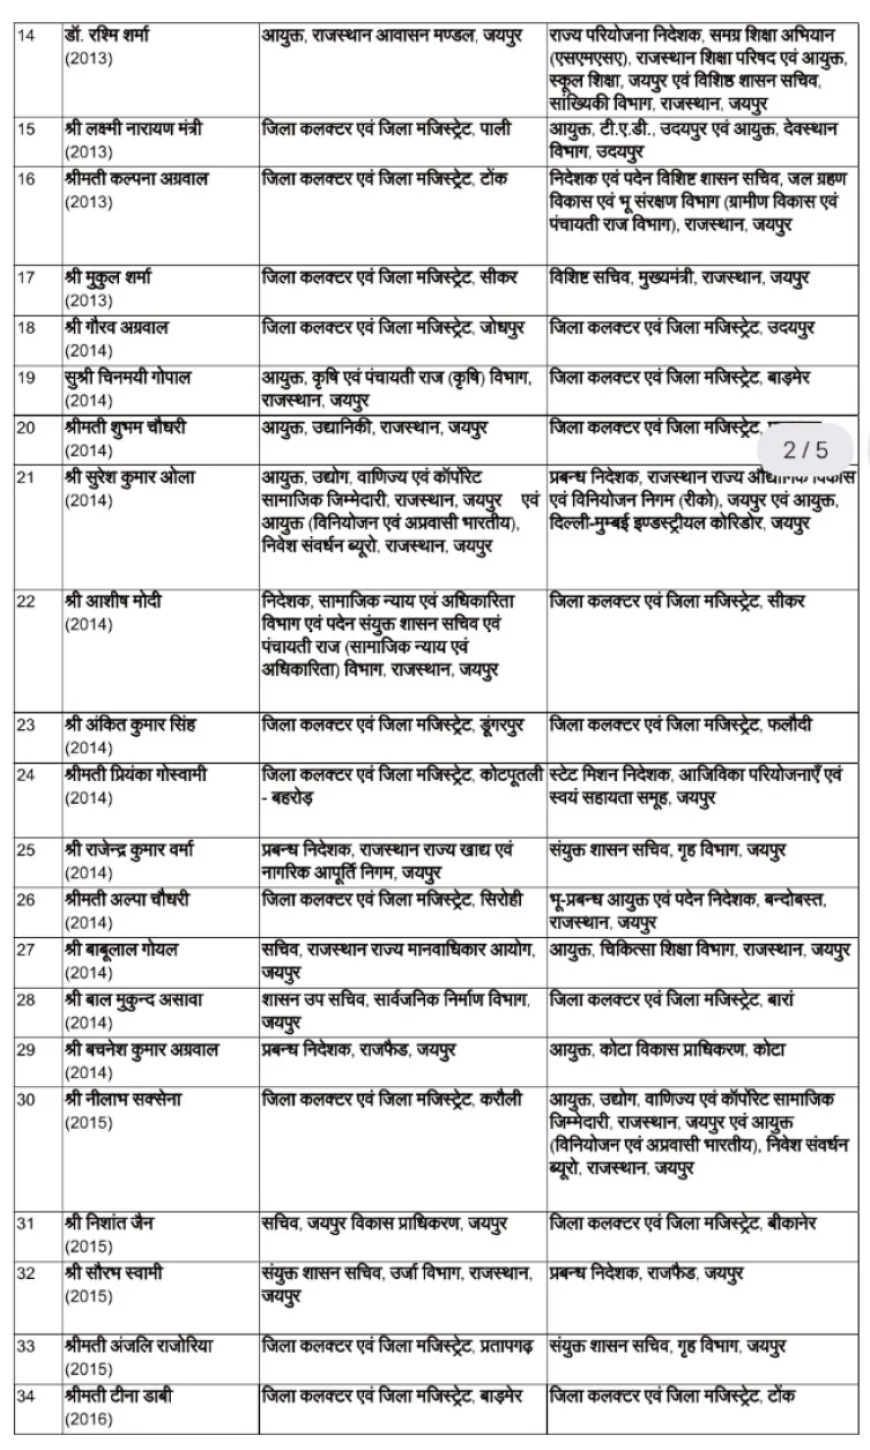 14
डॉ. रश्मि शर्मा
(2013)
आयुक्त, राजस्थान आवासन मण्डल, जयपुर
राज्य परियोजना निदेशक, समग्र शिक्षा अभियान
(एसएमएसए), राजस्थान शिक्षा परिषद एवं आयुक्त,
स्कूल शिक्षा, जयपुर एवं विशिष्ठ शासन सचिव,
सांख्यिकी विभाग, राजस्थान, जयपुर
15
श्री लक्ष्मी नारायण मंत्री
(2013)
जिला कलक्टर एवं जिला मजिस्ट्रेट, पाली
आयुक्त, टी.ए.डी., उदयपुर एवं आयुक्त, देवस्थान
विभाग, उदयपुर
16
श्रीमती कल्पना अग्रवाल
(2013)
जिला कलक्टर एवं जिला मजिस्ट्रेट, टोंक
निदेशक एवं पदेन विशिष्ट शासन सचिव, जल ग्रहण
विकास एवं भू संरक्षण विभाग (ग्रामीण विकास एवं
पंचायती राज विभाग), राजस्थान, जयपुर
17
श्री मुकुल शर्मा
(2013)
जिला कलक्टर एवं जिला मजिस्ट्रेट, सीकर
विशिष्ट सचिव, मुख्यमंत्री, राजस्थान, जयपुर
18
श्री गौरव अग्रवाल
(2014)
जिला कलक्टर एवं जिला मजिस्ट्रेट, जोधपुर
जिला कलक्टर एवं जिला मजिस्ट्रेट, उदयपुर
19
सुश्री चिनमयी गोपाल
(2014)
आयुक्त, कृषि एवं पंचायती राज (कृषि) विभाग,
राजस्थान, जयपुर
जिला कलक्टर एवं जिला मजिस्ट्रेट, बाड़मेर
20
श्रीमती शुभम चौधरी
(2014)
आयुक्त, उद्यानिकी, राजस्थान, जयपुर
जिला कलक्टर एवं जिला मजिस्ट्रेट,
2 / 5
21
श्री सुरेश कुमार ओला
(2014)
आयुक्त, उद्योग, वाणिज्य एवं कॉर्पोरेट
सामाजिक जिम्मेदारी, राजस्थान, जयपुर एवं
आयुक्त (विनियोजन एवं अप्रवासी भारतीय),
निवेश संवर्धन ब्यूरो, राजस्थान, जयपुर
प्रबन्ध निदेशक, राजस्थान राज्य औद्योगिक विकास
एवं विनियोजन निगम (रीको), जयपुर एवं आयुक्त,
दिल्ली-मुम्बई इण्डस्ट्रीयल कोरिडोर, जयपुर
22
श्री आशीष मोदी
(2014)
निदेशक, सामाजिक न्याय एवं अधिकारिता
विभाग एवं पदेन संयुक्त शासन सचिव एवं
पंचायती राज (सामाजिक न्याय एवं
अधिकारिता) विभाग, राजस्थान, जयपुर
जिला कलक्टर एवं जिला मजिस्ट्रेट, सीकर
23
श्री अंकित कुमार सिंह
(2014)
जिला कलक्टर एवं जिला मजिस्ट्रेट, डूंगरपुर
जिला कलक्टर एवं जिला मजिस्ट्रेट, फलौदी
24
श्रीमती प्रियंका गोस्वामी
(2014)
जिला कलक्टर एवं जिला मजिस्ट्रेट, कोटपूतली
- बहरोड़
स्टेट मिशन निदेशक, आजिविका परियोजनाएँ एवं
स्वयं सहायता समूह, जयपुर
25
श्री राजेन्द्र कुमार वर्मा
(2014)
प्रबन्ध निदेशक, राजस्थान राज्य खाद्य एवं
नागरिक आपूर्ति निगम, जयपुर
संयुक्त शासन सचिव, गृह विभाग, जयपुर
26
श्रीमती अल्पा चौधरी
(2014)
जिला कलक्टर एवं जिला मजिस्ट्रेट, सिरोही
भू-प्रबन्ध आयुक्त एवं पदेन निदेशक, बन्दोबस्त,
राजस्थान, जयपुर
27
श्री बाबूलाल गोयल
(2014)
सचिव, राजस्थान राज्य मानवाधिकार आयोग,
जयपुर
आयुक्त, चिकित्सा शिक्षा विभाग, राजस्थान, जयपुर
28
श्री बाल मुकुन्द असावा
(2014)
शासन उप सचिव, सार्वजनिक निर्माण विभाग,
जयपुर
जिला कलक्टर एवं जिला मजिस्ट्रेट, बारां
29
श्री बचनेश कुमार अग्रवाल
(2014)
प्रबन्ध निदेशक, राजफैड, जयपुर
आयुक्त, कोटा विकास प्राधिकरण, कोटा
30
श्री नीलाभ सक्सेना
(2015)
जिला कलक्टर एवं जिला मजिस्ट्रेट, करौली
आयुक्त, उद्योग, वाणिज्य एवं कॉर्पोरेट सामाजिक
जिम्मेदारी, राजस्थान, जयपुर एवं आयुक्त
(विनियोजन एवं अप्रवासी भारतीय), निवेश संवर्धन
ब्यूरो, राजस्थान, जयपुर
31
श्री निशांत जैन
(2015)
सचिव, जयपुर विकास प्राधिकरण, जयपुर
जिला कलक्टर एवं जिला मजिस्ट्रेट, बीकानेर
32
श्री सौरभ स्वामी
(2015)
संयुक्त शासन सचिव, उर्जा विभाग, राजस्थान,
जयपुर
प्रबन्ध निदेशक, राजफैड, जयपुर
33
श्रीमती अंजलि राजोरिया
(2015)
जिला कलक्टर एवं जिला मजिस्ट्रेट, प्रतापगढ़
संयुक्त शासन सचिव, गृह विभाग, जयपुर
34
श्रीमती टीना डाबी
(2016)
जिला कलक्टर एवं जिला मजिस्ट्रेट, बाड़मेर
जिला कलक्टर एवं जिला मजिस्ट्रेट, टोंक